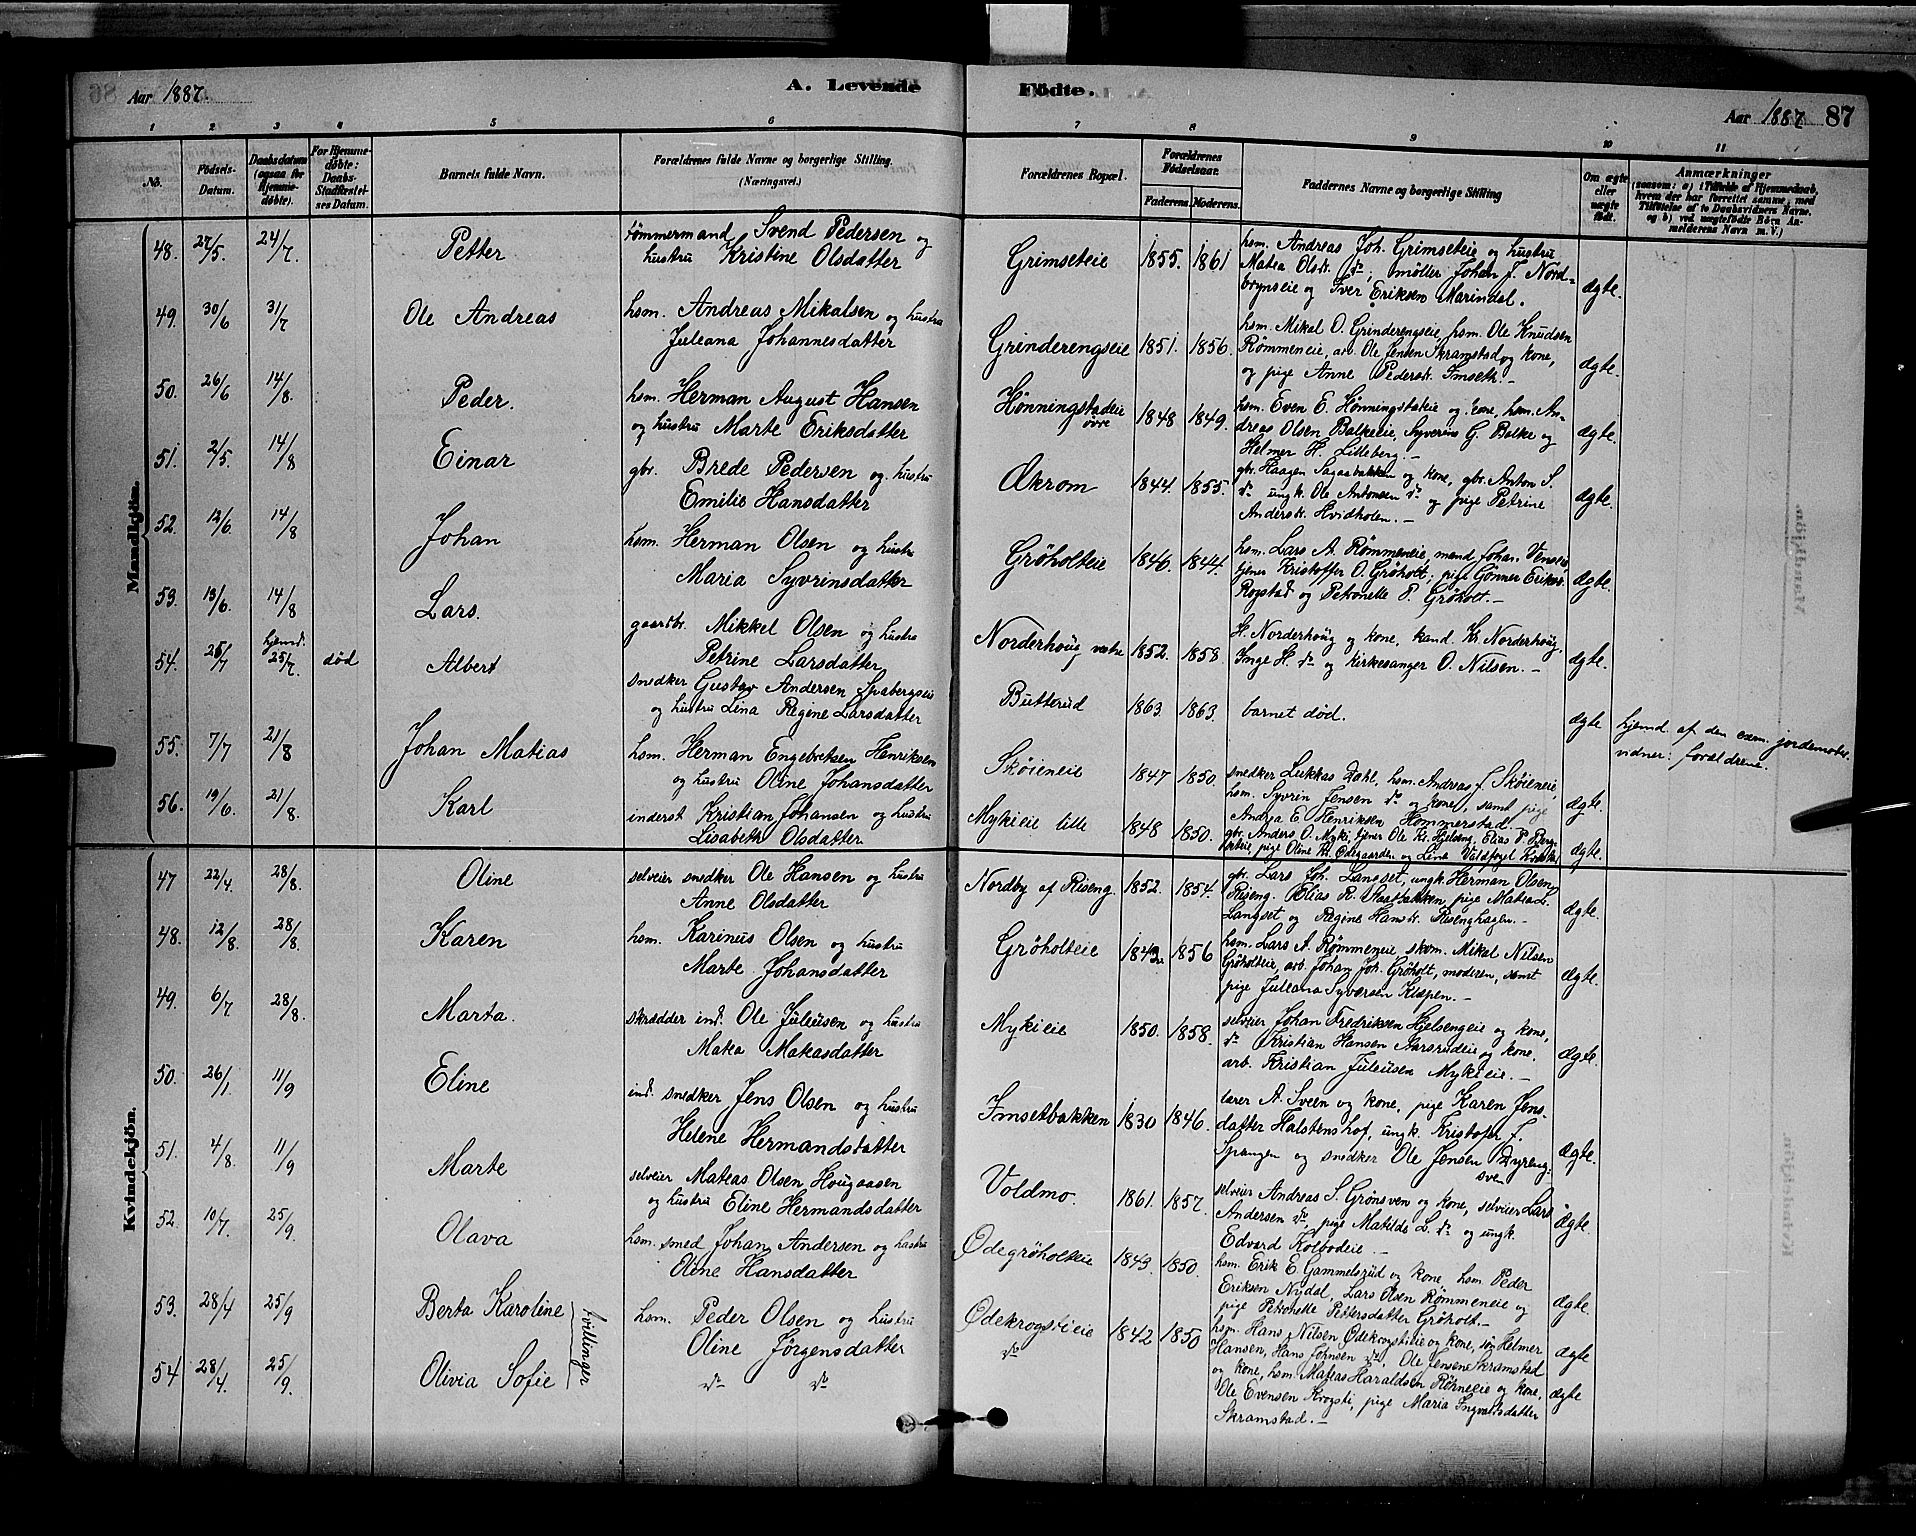 Aar 1887. A. Levende Födte. Aar 1887 87
1 2 3 4 5 6 7 8 9 10 11
No. Fødsels-Datum. Daabsdatum (ogsaa for Hjemmedøbte). For Hjemmedøbte: Daabs-Stadfæstelses Datum. Barnets fulde Navn. Forældrenes fulde Navne og borgerlige Stilling. (Næringsvei.) Forældrenes Bopæl. Forældrenes Fødselsaar. Faderens. Moderens. Faddernes Navne og borgerlige Stilling Om ægte eller uægte født. Anmærkninger (saasom: a) i Tilfælde af Hjemmedaab, hvem der har forrettet samme, med Tilføielse af to Daabsvidners Navne, og b) ved uægtefødte Børn Anmelderens Navn m. V.)
Mandkjön.
48. 27/5. 24/7. Petter tømmermand Svend Pedersen og
hustru Kristine Olsdatter
Grimseteie 1855. 1861
hsm. Andreas Joh. Grimseteie og hustru
Matea Olsdt. do, møller Johan J. Nord-
brynseie og Iver Eriksen Marindal. ægte.
49. 30/6 31/7 Ole Andreas hsm. Andreas Mikalsen og hustru
Juleana Johannesdatter
Grinderengseie 1851. 1856.
hsm. Mikal O. Grinderengseie, hsm. Ole Knudsen
Rømmeneie, arb. Ole Jensen Skramstad og kone,
og pige Anne Pedersdt. Imseth. - ægte.
50. 26/6 14/8. Peder. hsm. Herman August Hansen
og hustru Marte Eriksdatter
Hønningstadeie øvre 1848 1849.
hsm. Even E. Hønningstadeie og kone, hsm. An-
dreas Olsen Balkeeie, Syverin G. Balke og
Helmer H. Lilleberg. - ægte.
51. 2/5. 14/8 Einar gbr. Brede Pedersen og hustru
Emilie Hansdatter
Økrom 1844. 1855.
gbr. Haagen Sagabakken og kone, gbr. Anton S.
do ungk. Ole Antonsen do og pige Petrine
Andersdt. Hvidholen. - ægte.
52. 12/6. 14/8 Johan hsm. Herman Olsen og hustru
Maria Syvrinsdatter
Grøholteie 1846. 1844.
hsm. Lars A. Rømmeneie, mand Johan
tjener Kristoffer O. Grøholt, pige Gønner Eriksdt.
Rogstad og Petronelle P. Grøholt. - ægte.
53. 13/6. 14/8 Lars. gaardbr. Mikkel Olsen og hustru
Petrine Larsdatter
Norderhoug vestre 1852. 1858.
H. Norderhoug og kone, kand. Kr. Norderhoug,
Inge H. do og Kirkesanger O. Nilsen. - ægte.
54. 25/7 hjemd. 25/7. død Albert snedker Gustav Andersen
og hustru Lina Regine Larsdatter
Butterud 1863. 1863. barnet død. ægte
hjemd. af den exam. jordemoder
vidner: forældrene.
55. 7/7 21/8 Johan Matias hsm. Herman Engebretsen Henriksen
og hustru Oline Johansdatter
Skøieneie 1847 1850.
snedker Lukkas Dahl, hsm. Andreas J. Skøieneie
hsm. Syvrin Jensen do og kone, samt pige
Andrea E. Henriksen Hommerstad. ægte.
56. 19/6. 21/8. Karl inderst Kristian Johansen og hustru
Lisabeth Olsdatter
Mykieie lille 1848 1850.
gbr. Anders O. Myki, tjener Ole Kr. Hjelseng, Elias P. Berg-
pige Oline Kr. Ødegaarden og Lina ægte.
Kvindekjön.
47 22/4. 28/8. Oline selveier snedker Ole Hansen og hustru
Anne Olsdatter
Nordby af Riseng 1852. 1854.
gbr. Lars Joh. Langset, ungk. Herman Olsen
Riseng. Elias R. pige Matea L.
Langset og Regine Hansdt. Risenghagen. - ægte.
48. 12/8. 28/8. Karen hsm. Karinus Olsen og hustru
Marte Johansdatter
Grøholteie 1843. 1856
hsm. Lars A. Rømmeneie, skom. Mikel Nilsen
Grøholteie, arb. Johan Joh. Grøholt, moderen, samt
pige Juleana Syversen Kløpen. - ægte.
49. 6/7 28/8. Marta. skrædder ind. Ole Juleusen og hustru
Matea Mateasdatter
Mykieie 1850. 1858.
selveier Johan Fredriksen Hjelsengeie og kone,
do Kristian Hansen Aarsrudeie og kone,
arb. Kristian Juleusen Mykieie. - ægte.
50. 26/1. 11/9 Eline ind. snedker Jens Olsen og hustru
Helene Hermandsdatter
Imsetbakken 1830 1846.
lærer A. Sveen og kone, pige Karen Jens-
datter Halstenshof, ungk. Kristofer J.
Spangen og snedker Ole Jensen Dyreng-
sven ægte.
51. 4/8. 11/9 Marte selveier Mateas Olsen Hougaasen
og hustru Eline Hermandsdatter
Voldmo. 1861. 1857.
selveier Andreas S. Grønsven og kone, selveier Lars
Andersen do, pige Matilde L. do og ungk.
Edvard Kolbodeie. - ægte.
52. 10/7. 25/9. Olava hsm. smed Johan Andersen og hustru
Oline Hansdatter
Ødegrøholteie 1843. 1850.
hsm. Erik E. Gammelsrud og kone, hsm. Peder
Eriksen Nydal, Lars Olsen Rømmeneie og
pige Petronelle Pettersdatter Grøholt. - ægte.
53. 28/4 25/9 Berta Karoline hsm. Peder Olsen og hustru
Oline Jørgensdatter
Ødekrogstieie 1842 1850
hsm. Hans Nilsen Ødekrogstieie og kone, søn Helmer
Hansen, Hans Johnsen do, Ole Jensen Skramstad ægte
tvillinger
54 28/4. 25/9. Olivia Sofie do do do
og kone, hsm. Mateas Haraldsen Røhneeie og kone,
Ole Evensen Krogsti, pige Maria Ingvaldsdatter
Skramstad. - ægte